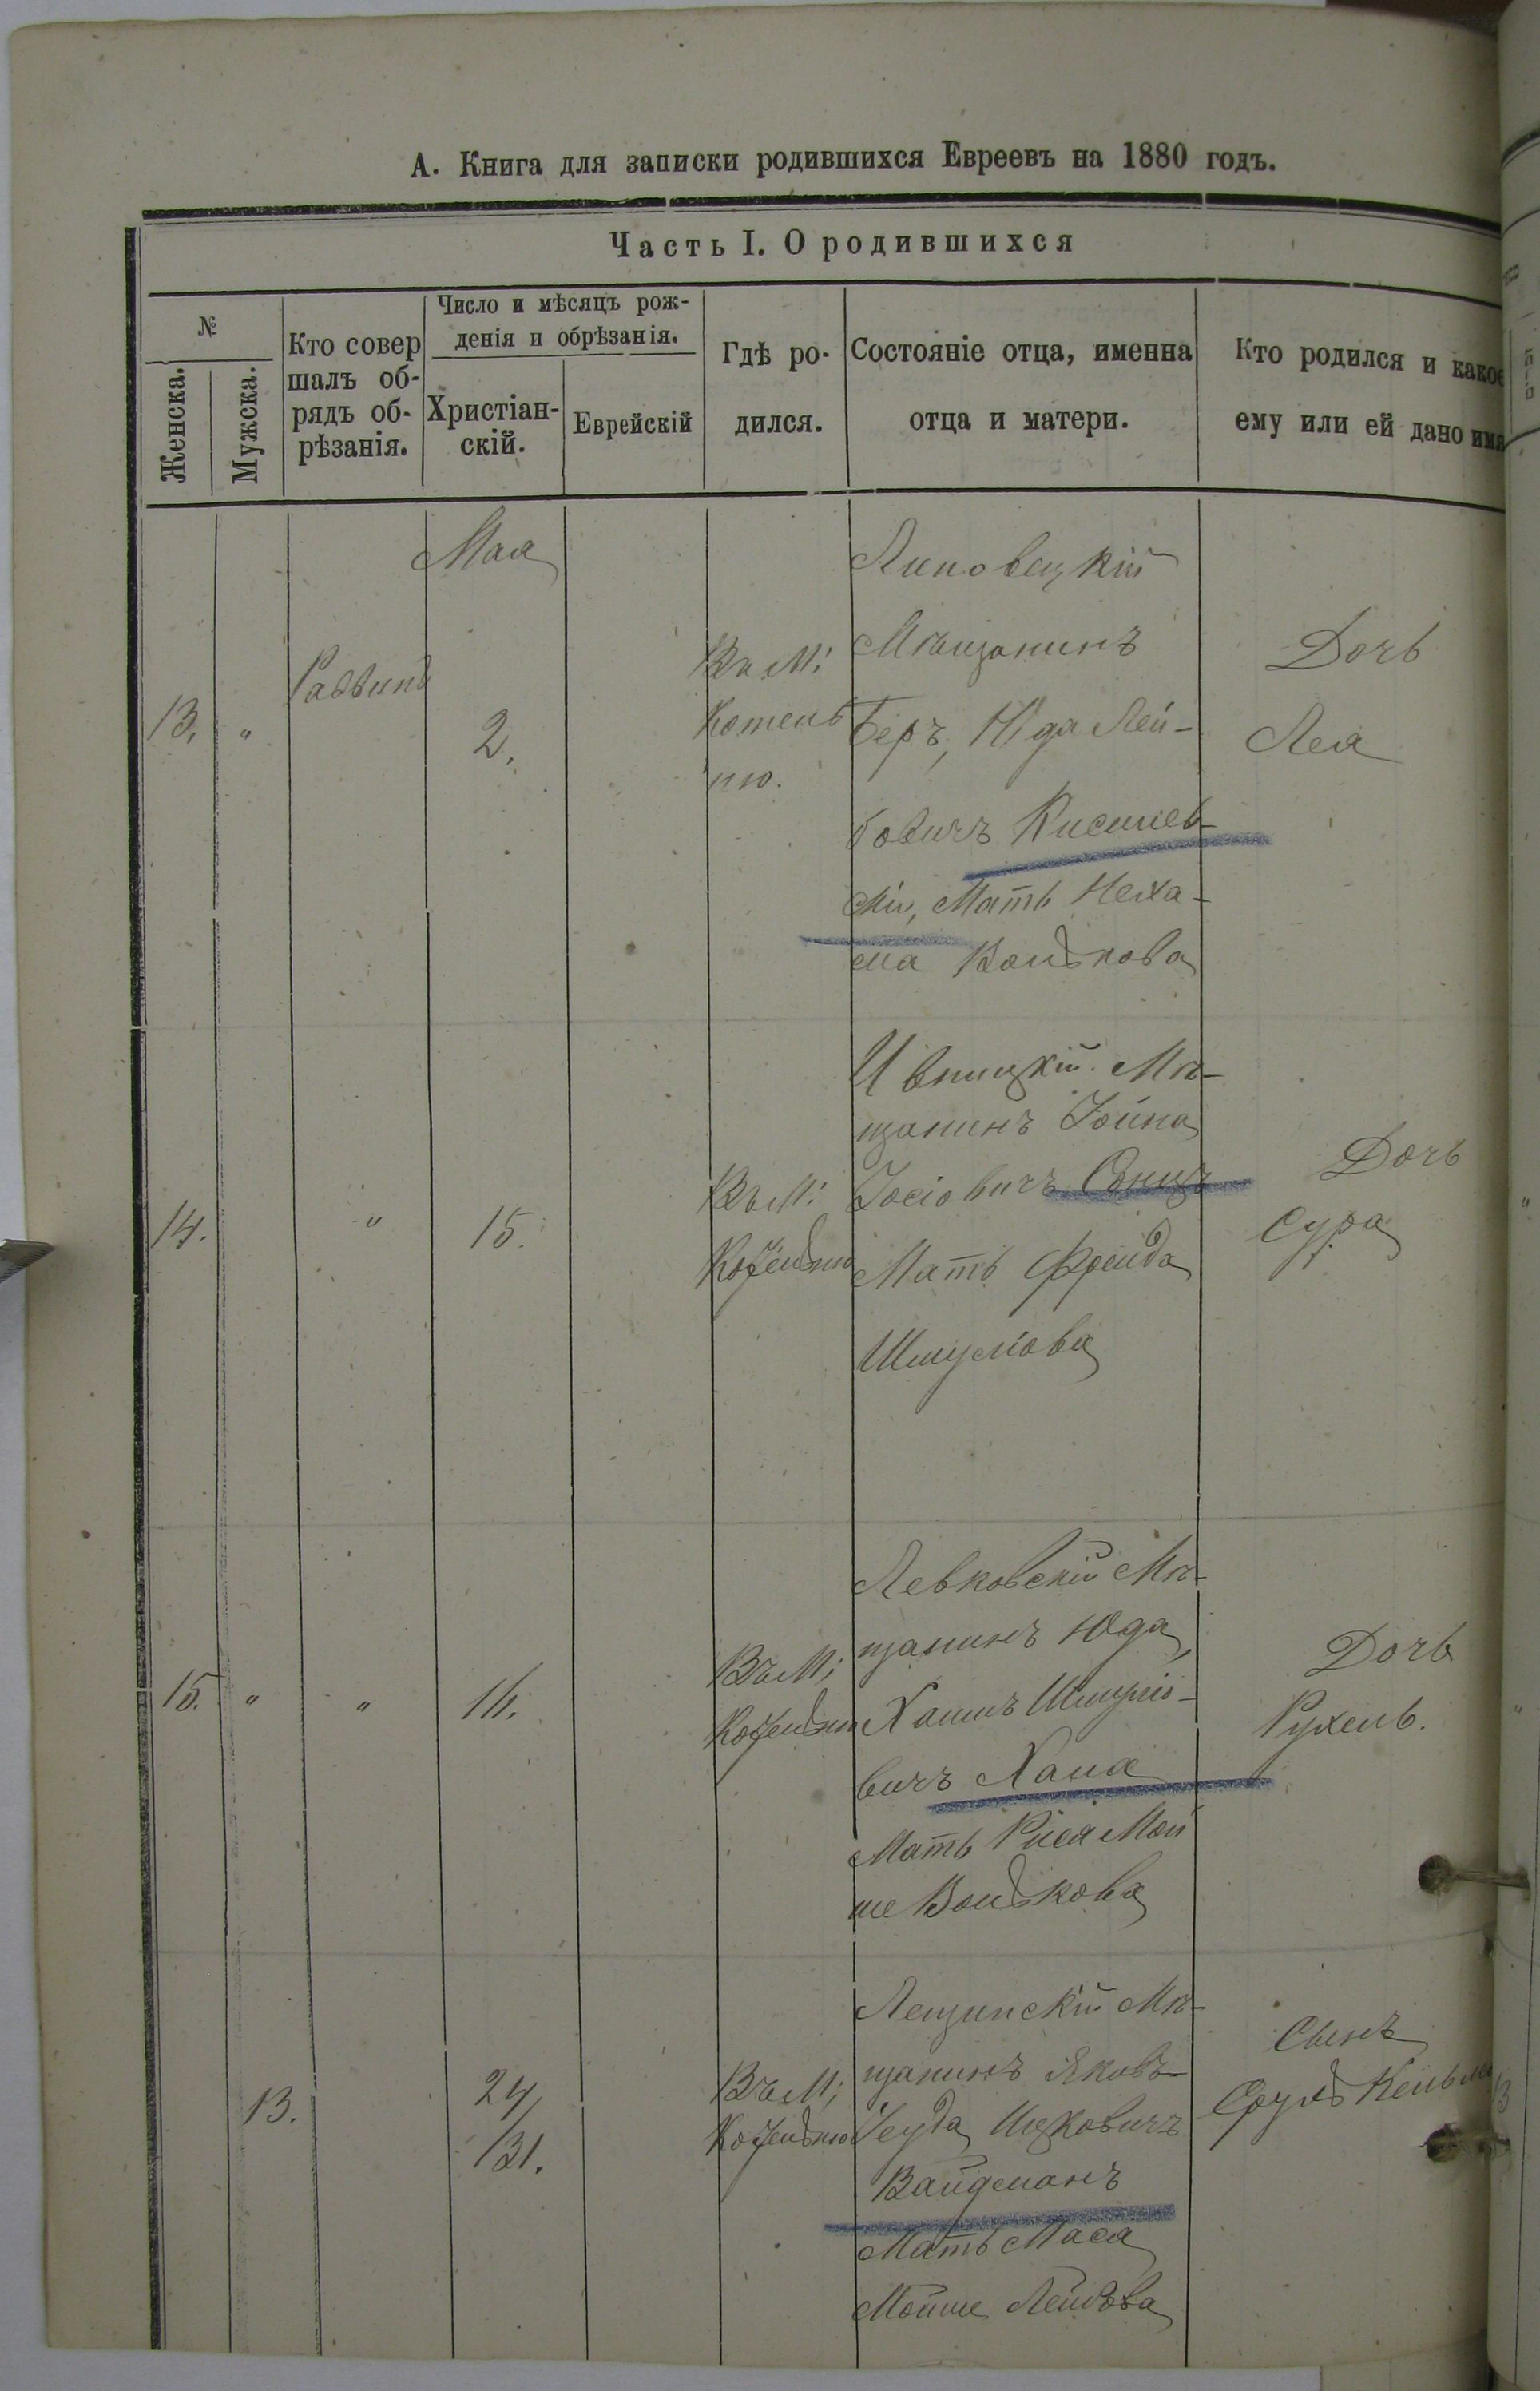 А. Книга для записки родившихся Евреевъ на 1880 годъ.
Часть I. О родившихся
№
Женска.
Мужска.
Кто совер
шалъ об-
рядъ об-
рѣзанія.
Число и мѣсяцъ рож-
денія и обрѣзанія.
Христіан-
скій.
Еврейскій
Гдѣ ро-
дился.
Состояніе отца, именна
отца и матери.
Кто родился и какое
ему или ей дано имя
Мая
13.
"
Раввинъ
2.
Въ М:
Котель
ню.
Липовецкій
Мѣщанинъ
Беръ, Юда Лей-
бовичъ Кисилев-
скій, Мать Неха-
ма Волькова
Дочь
Лея
14.
"
15.
Въ М:
Ивницкій Мѣ-
щанинъ Іойна
Іосіовичъ
Мать Фрейда
Шмулова
Дочь
Сура
15.
"
"
16.
Въ М:
Левковскій Мѣ-
щанинъ Юда,
Хаимъ Шмулio-
вичъ
Мать Рися Мой
ше Волькова
Дочь
Рухель.
13.
24/
/31.
Въ М:
Лещинскій Мѣ-
щанинъ Яковъ-
Іеуда Ицковичъ
Вайдманъ
Мать Мася
Мойше Лейбова
Сынъ
Сруль